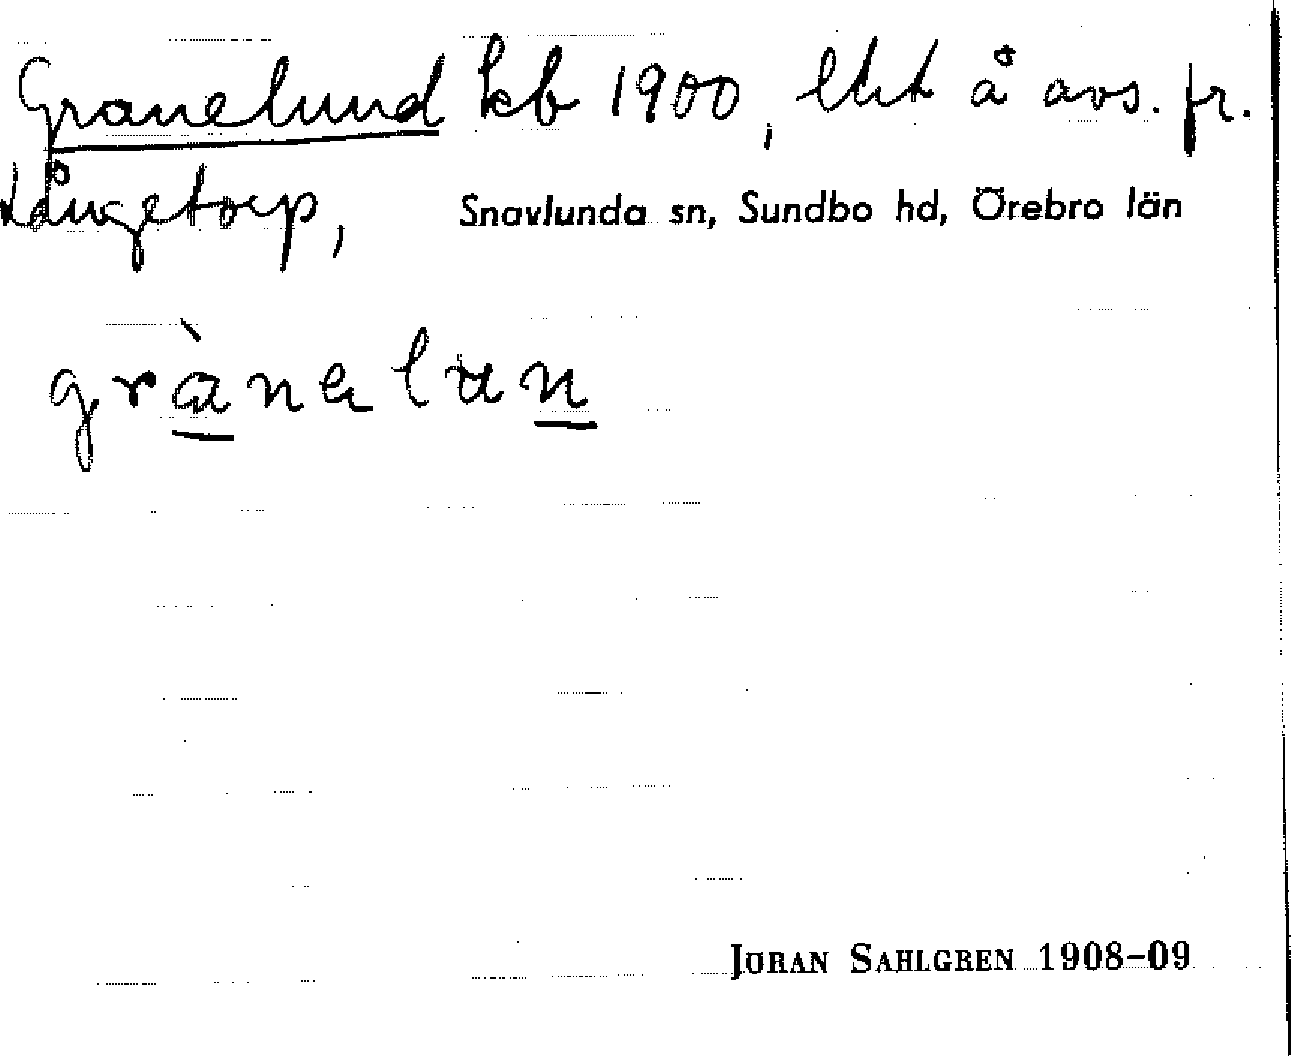 Granelund kb 1900, lht å avs. fr.
Långetorp, Snavlunda sn, Sundbo hd, Örebro län
gràneluṉ
JÖRAN SAHLGREN 1908-09